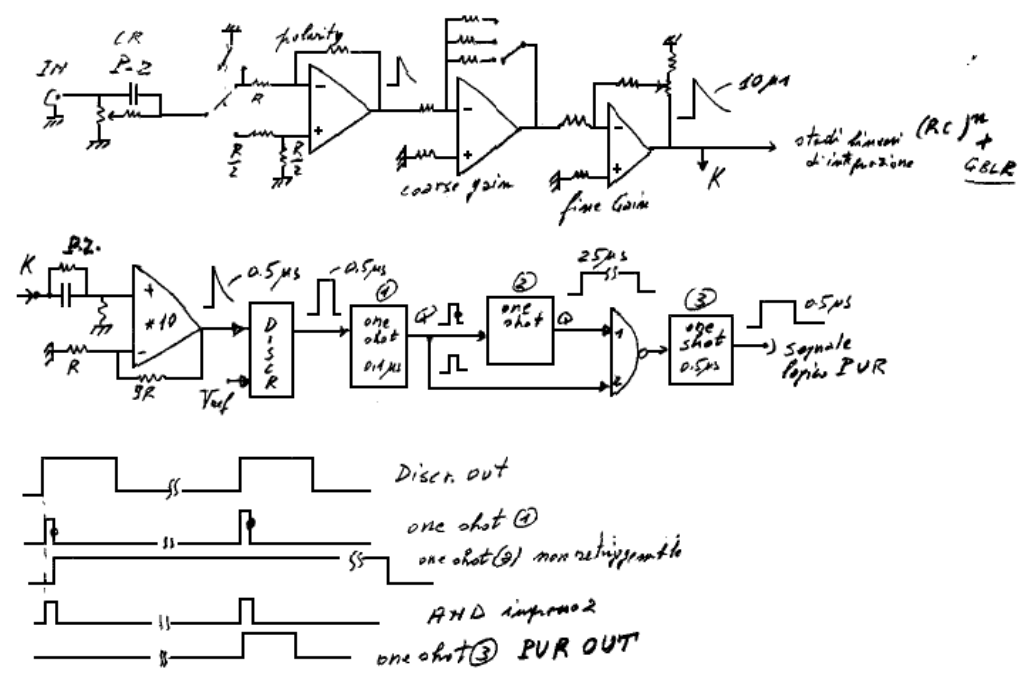 CR
P-Z
IN
polarity
R
R/2
R/2
coarse gain
fine Gain
10 µs
K
stadi lineari (RC)ⁿ +
di integrazione GBLR
K
P.Z.
*10
R
9R
0.5µs
Vref
DISCR
0.5µs
①
one
shot
0.1µs
Q
②
one
shot
Q
25µs
1
2
③
one
shot
0.5µs
0.5µs
segnale
logico PUR
Discr. out
one shot ①
one shot (2) non retriggerabile
AND ingresso 2
one shot ③ PUR OUT